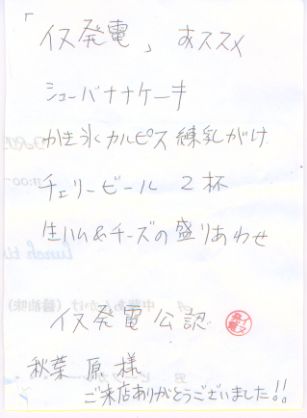 「イス発電」 おススメ
シューバナナケーキ
かき氷カルピス練乳がけ
チェリービール 2杯
生ハム&チーズの盛りあわせ
イス発電公認
秋葉原様
ご来店ありがとうございました!!